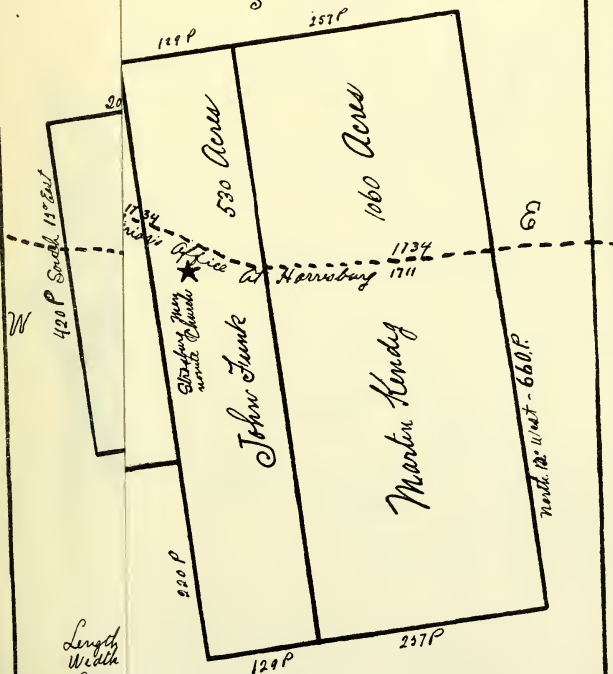 129 P
257P
20
530 Acres
1060 Acres
420 P South 12° East
1734
Office
At Harresburg
1734
1711
W
Strasburg Men
nonite Church
John Funk
Martin Kendig
North 12° West - 660 P.
220 P
Length
Width
129 P
257P